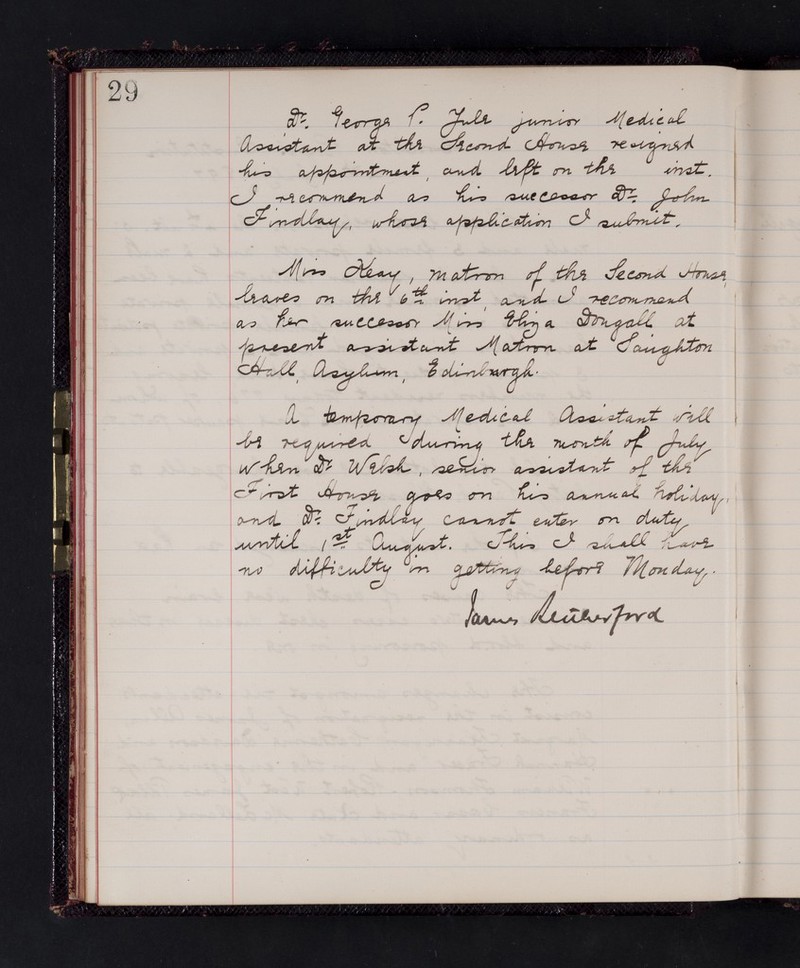 29
Dr. George P. Yule junior Medical
Assistant at the Second House resigned
his appointment, and left on the inst.
I recommend as his successor Dr. John
Findlay, whose application I submit.
Miss Keay, matron of the Second House,
leaves on the 6th inst, and I recommend
as her successor Miss Eliza Dougall at
present assistant Matron at Saughton
Hall, Asylum, Edinburgh.
A temporary Medical Assistant will
be required during the month of July
when Dr Welsh, senior assistant of the
First House goes on his annual holiday,
and Dr. Findlay cannot enter on duty
until 1st August. This I shall have
no difficulty in getting before Monday.
James Rutherford